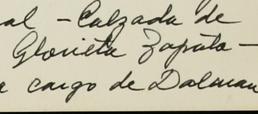 al - Calzada de
Glorieta Zapata -
a cargo de Dalmau